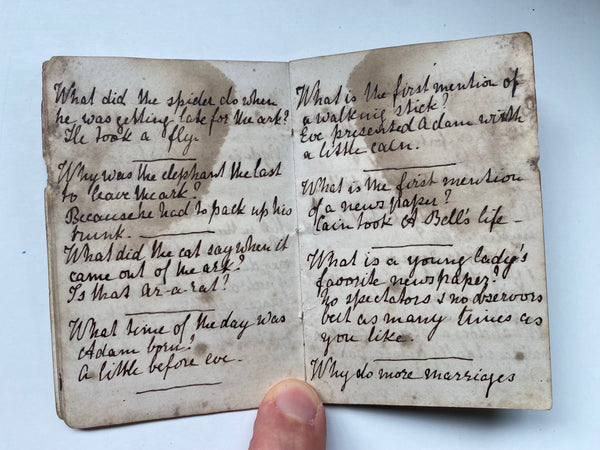 What did the spider do when
he was getting late for the ark?
He took a fly.
Why was the elephant the last
to leave the ark?
Because he had to pack up his
trunk.
What did the cat say when it
came out of the ark?
Is that Ar-a-rat?
What time of the day was
Adam born?
A little before eve.
What is the first mention of
a walking stick?
Eve presented Adam with
a little Cain.
What is the first mention
of a newspaper?
Cain took A Bell's life -
What is a young lady's
favorite newspaper?
No spectators & no observors
but as many times as
you like.
Why do more marriages